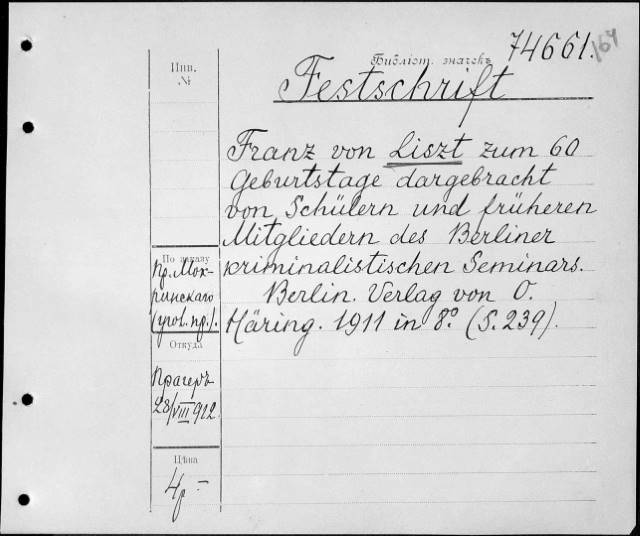 74661.
164
Библіот. значекъ
Инв.
№
Festschrift
Franz von Liszt zum 60
Geburtstage dargebracht
von Schülern und früheren
Mitgliedern des Berliner
kriminalistischen Seminars.
Berlin. Verlag von O.
Häring. 1911 in 8.° (S. 239).
По заказу
пр. Мок-
ринскаго
(угол. пр.).
Откуда
Прагеръ
28/VIII 912
Цѣна
4р –